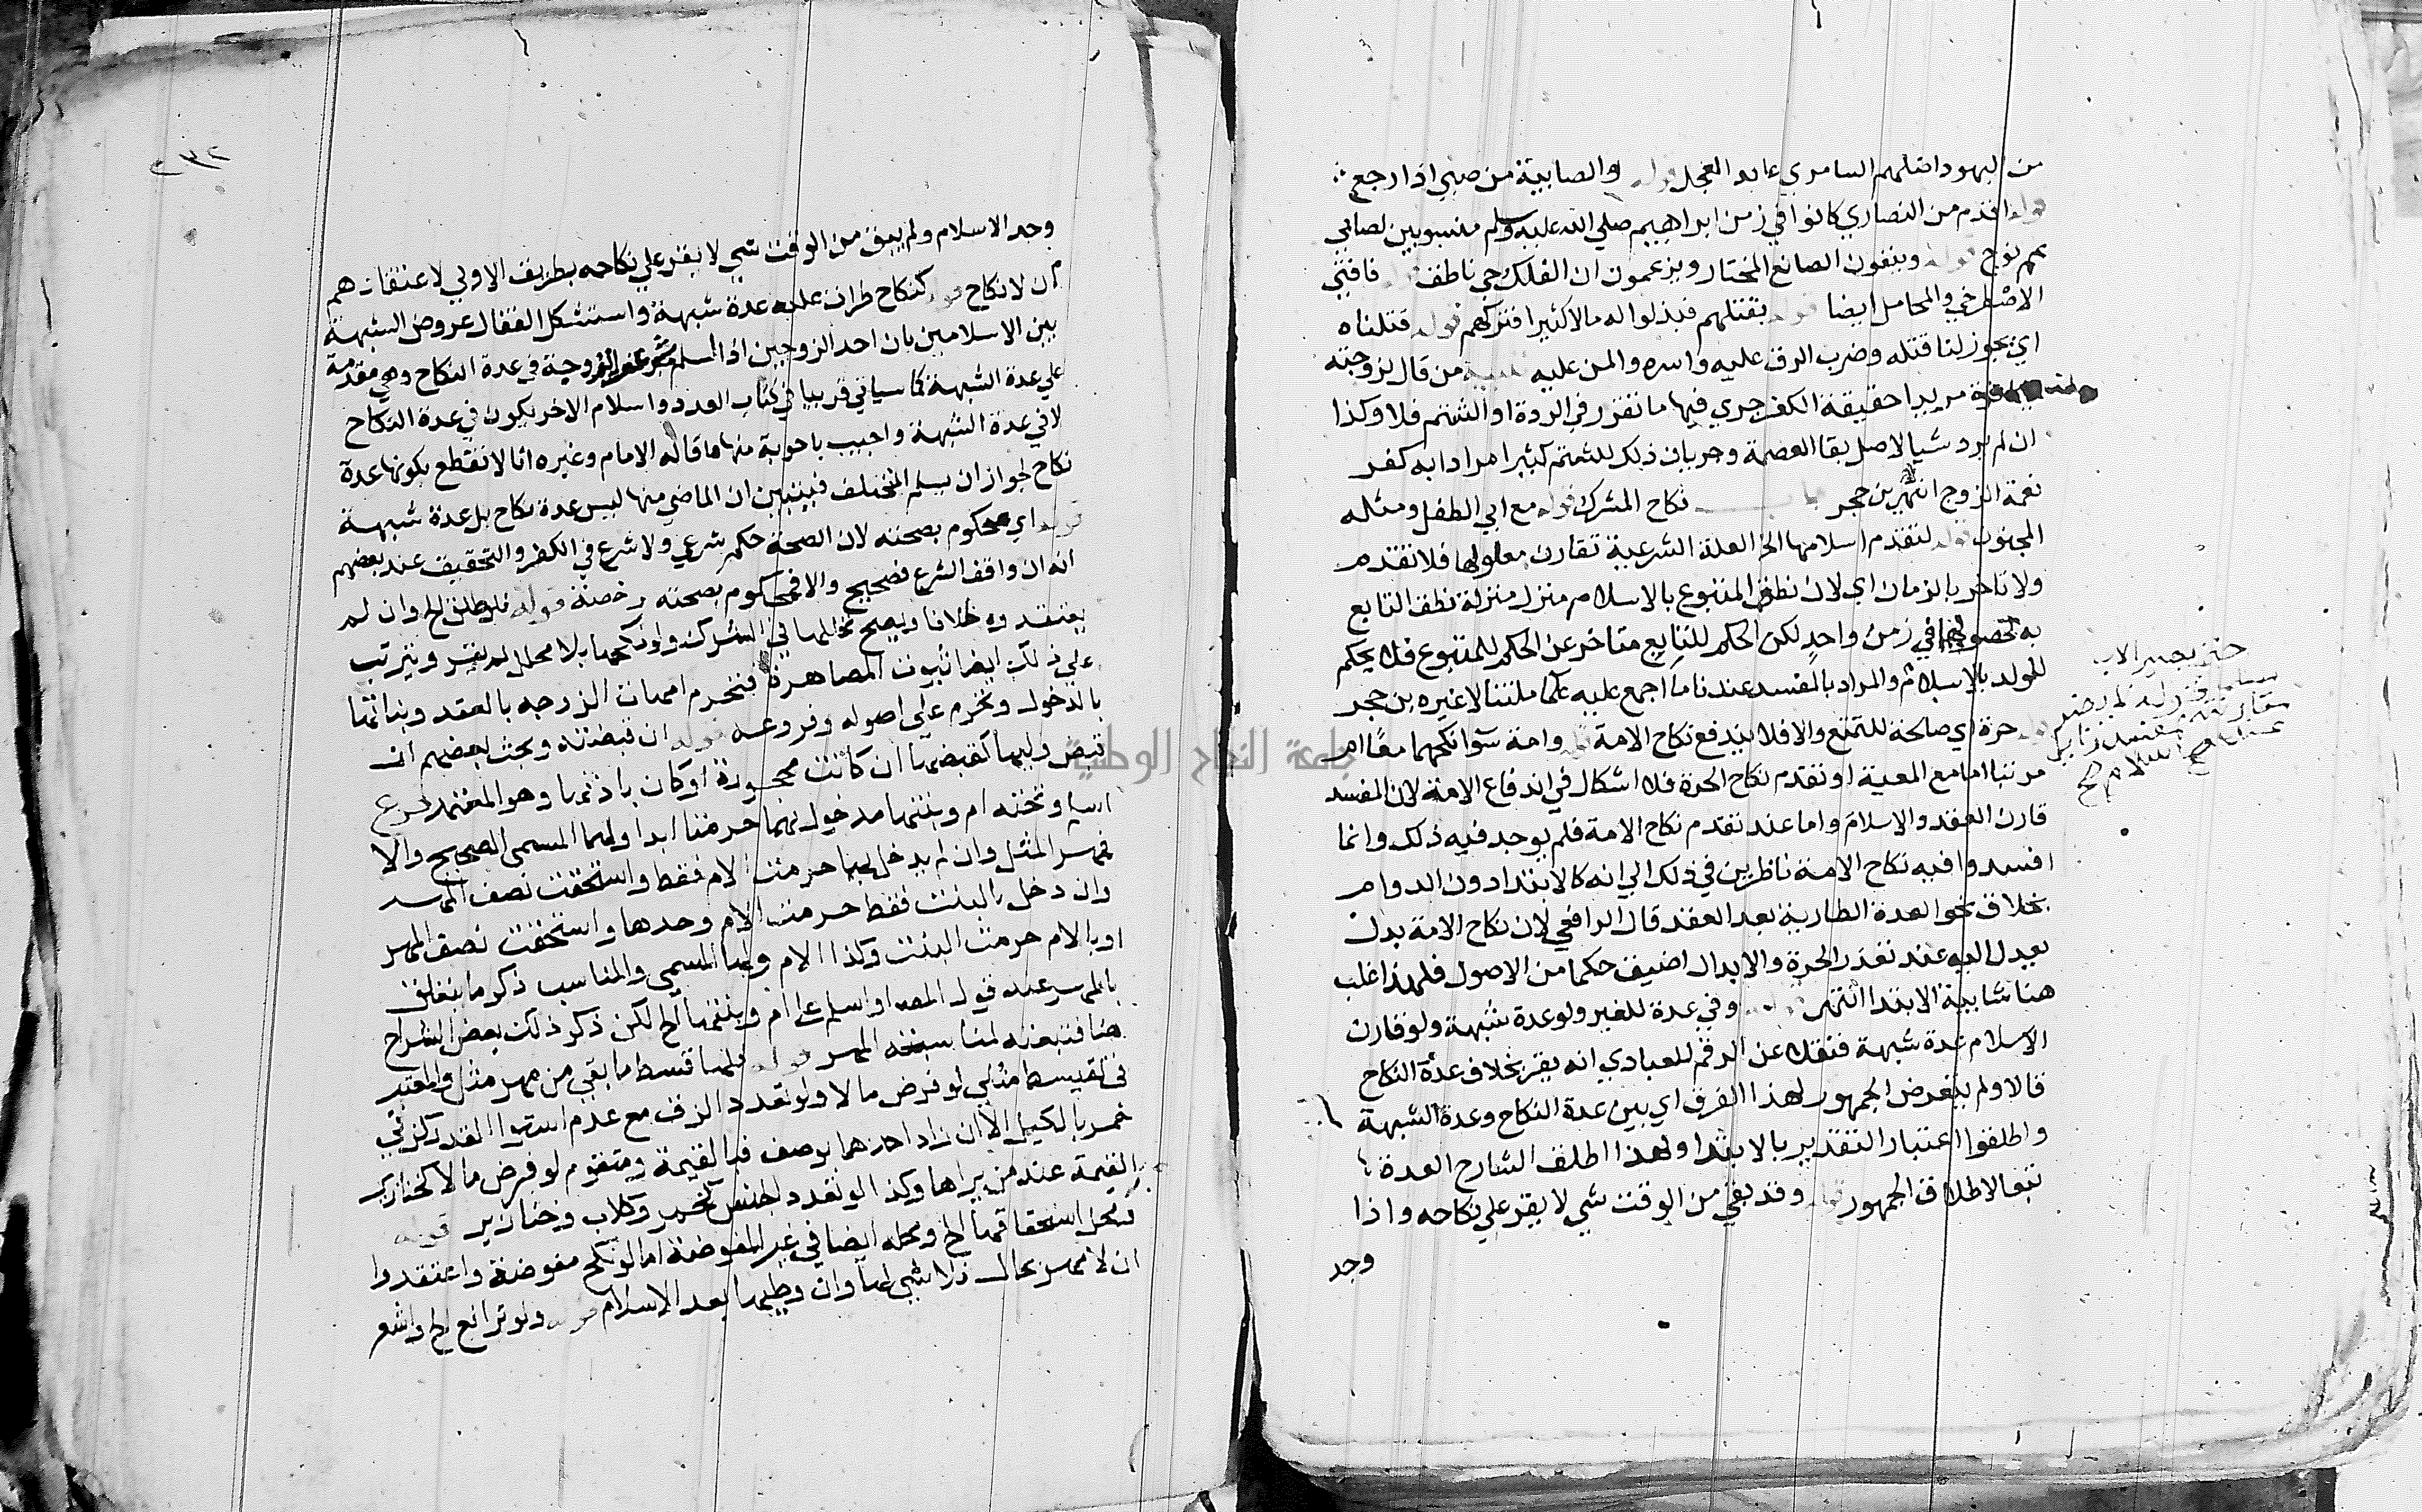 من اليهود اضلهم السامري عابد العجل قوله والصابية من صبي اذا رجع
قوله اقدم من النصاري كانوا في زمن ابراهيم صلي الله عليه وسلم منسوبين لصابي
عم نوح قوله وينفون الصانع المختار ويزعمون ان الفلك حي ناطق قوله فافتي
الاصطرخي والمحاملي ايضا قوله بقتلهم فبذلوا له مالا كثيرا فتركهم قوله قتلناه
اي يجوز لنا قتله وضرب الرق عليه واسره والمن عليه تنبيه من قال لزوجته
كافرة مريدا حقيقة الكفر جري فيها ما تقرر في الردة او الشتم فلا وكذا
ان لم يرد شيا لاصل بقا العصمة وجريان ذلك للشتم كثيرا مرادا به كفر
نعمة الزوج انتهي بن حجر باب نكاح المشرك قوله مع ابي الطفل ومثله
المجنون قوله لتقدم اسلامها الخ العلة الشرعية تقارن معلولها فلا تقدم
ولا تاخر بالزمان اي لان نطق المتبوع بالاسلام منزل منزلة نطق التابع
به لحصولهما في زمن واحد لكن الحكم للتابع متاخر عن الحكم للمتبوع فلا يحكم
للولد بالاسلام والمراد بالمفسد عندنا ما اجمع عليه علما ملتنا لا غيره بن حجر
قوله حرة اي صالحة للتمتع والا فلا يندفع نكاح الامة قوله وامة سوا نكحهما معا ام
مرتبا اما مع المعية او تقدم نكاح الحرة فلا اشكال في اندفاع الامة لان المفسد
قارن العقد والاسلام واما عند تقدم نكاح الامة فلم يوجد فيه ذلك وانما
افسدوا فيه نكاح الامة ناظرين في ذلك الي انه كالابتدا دون الدوام
بخلاف نحو العدة الطارية بعد العقد قال الرافعي لان نكاح الامة بدل
يعدل اليه عند تعذر الحرة والابدال اضيق حكما من الاصول فلهذا غلب
هنا شايبة الابتدا انتهي قوله وفي عدة للغير ولو عدة شبهة ولو قارن
الاسلام عدة شبهة فنقلا عن الرقم للعبادي انه يقر بخلاف عدة النكاح
قالا ولم يتعرض الجمهور لهذا الفرق اي بين عدة النكاح وعدة الشبهة
واطلقوا اعتبار التقدير بالابتدا ولهذا اطلق الشارح العدة
تبعا لاطلاق الجمهور قوله وقد بقي من الوقت شي لا يقر علي نكاحه واذا
وجد
مسلما
٢٣٢
وجد الاسلام ولم يبق من الوقت شي لا يقر علي نكاحه بطريق الاولي لاعتقادهم
ان لا نكاح قوله كنكاح طرات عليه عدة شبهة واستشكل القفال عروض الشبهة
بين الاسلامين بان احد الزوجين اذا اسلم شرعت الزوجة في عدة النكاح وهي مقدمة
علي عدة الشبهة كما سياتي قريبا في كتاب العدد واسلام الاخر يكون في عدة النكاح
لا في عدة الشبهة واجيب باجوبة منها ما قاله الامام وغيره انا لا نقطع بكونها عدة
نكاح لجواز ان يسلم المتخلف فيتبين ان الماضي منها ليس عدة نكاح بل عدة شبهة
قوله اي محكوم بصحته لان الصحة حكم شرعي ولا شرع في الكفر والتحقيق عند بعضهم
انه ان وافق الشرع فصحيح والا فمحكوم بصحته رخصة قوله فلو طلق الخ وان لم
يعتقدوه طلاقا ويصح تحللها في الشرك ولو نكحها بلا محلل لم يقر ويترتب
علي ذلك ايضا ثبوت المصاهرة فتحرم امهات الزوجة بالعقد وبناتها
بالدخول وتحرم علي اصوله وفروعه قوله ان قبضته وبحث بعضهم ان
قبض وليها كقبضها ان كانت محجورة او كان باذنها وهو المعتمد فرع
اسلم وتحته ام وبنتها مدخول بهما حرمتا ابدا ولهما المسمي الصحيح والا
فمهر المثل وان لم يدخل بهما حرمت الام فقط واستحقت نصف المهر
وان دخل بالبنت فقط حرمت الام وحدها واستحقت نصف المهر
او بالام حرمت البنت وكذا الام ولها المسمي والمناسب ذكر ما يتعلق
بالمهر عند قول المصـ او اسلم علي ام وبنتها الخ لكن ذكر ذلك بعض الشراح
هنا فتبعته لمناسبته المهر قوله فلها قسط ما بقي من مهر مثل والمعتبر
في تقسيط مثلي لو فرض مالا ولو تعدد الزق مع عدم استوا القدر كزقي
خمر بالكيل الا ان زاد احدهما بوصف فبالقيمة ومتقوم لو فرض مالا كخنازير
القيمة عند من يراها وكذا لو تعدد الجنس كخمر وكلاب وخنازير قوله
محل استحقاقها الخ ومحله ايضا في غير المفوضة اما لو نكح مفوضة واعتقدوا
ان لا مهر بحال فلا شي لها وان وطيها بعد الاسلام قوله ولو ترافع الخ واشعر